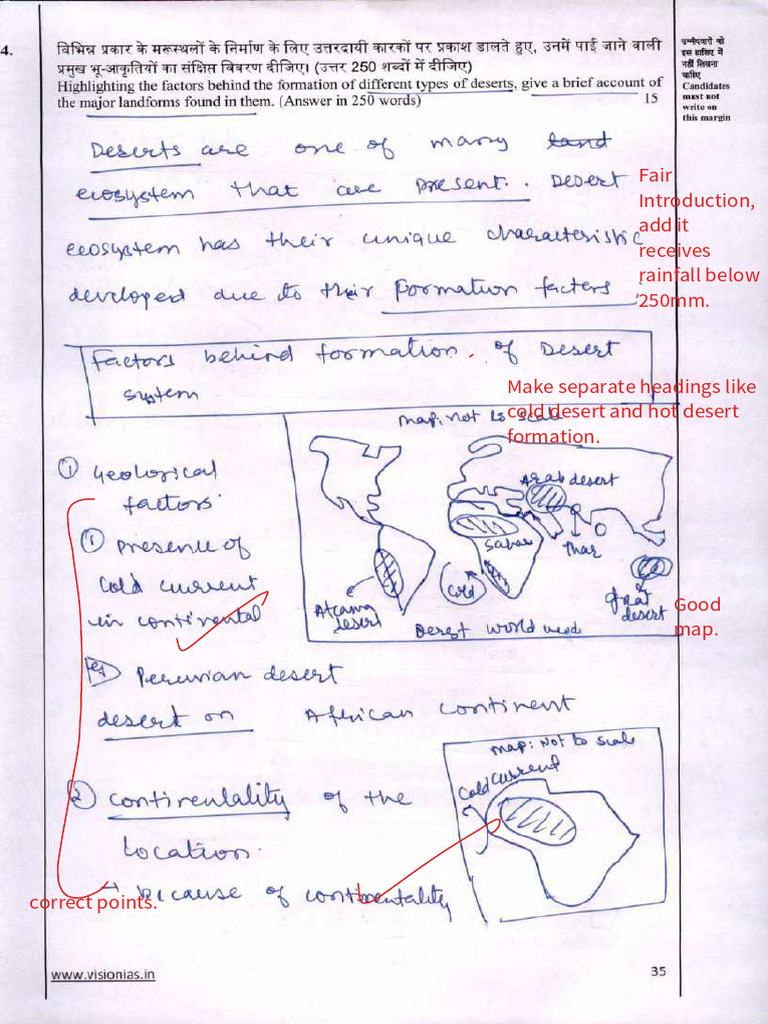 4.
विभिन्न प्रकार के मरूस्थलों के निर्माण के लिए उत्तरदायी कारकों पर प्रकाश डालते हुए, उनमें पाई जाने वाली
प्रमुख भू-आकृतियों का संक्षिप्त विवरण दीजिए। (उत्तर 250 शब्दों में दीजिए)
Highlighting the factors behind the formation of different types of deserts, give a brief account of
the major landforms found in them. (Answer in 250 words) 15
उम्मीदवारों को
इस हाशिए में
नहीं लिखना
चाहिए
Candidates
must not
write on
this margin
Deserts are one of many land
ecosystem that are present. Desert
ecosystem has their unique characteristic
developed due to their formation factors
Fair
Introduction,
add it
receives
rainfall below
250mm.
Factors behind formation of Desert
system
Make separate headings like
cold desert and hot desert
formation.
Map: Not to scale
Arab desert
Sahara
Thar
Cold
Atacama
desert
Great
desert
Desert world
Good
map.
① Geological
factors
① Presence of
cold current
in continental
eg Peruvian desert
desert on African continent
② Continentality of the
location.
→ because of continentality
correct points.
Map: Not to scale
Cold current
www.visionias.in
35